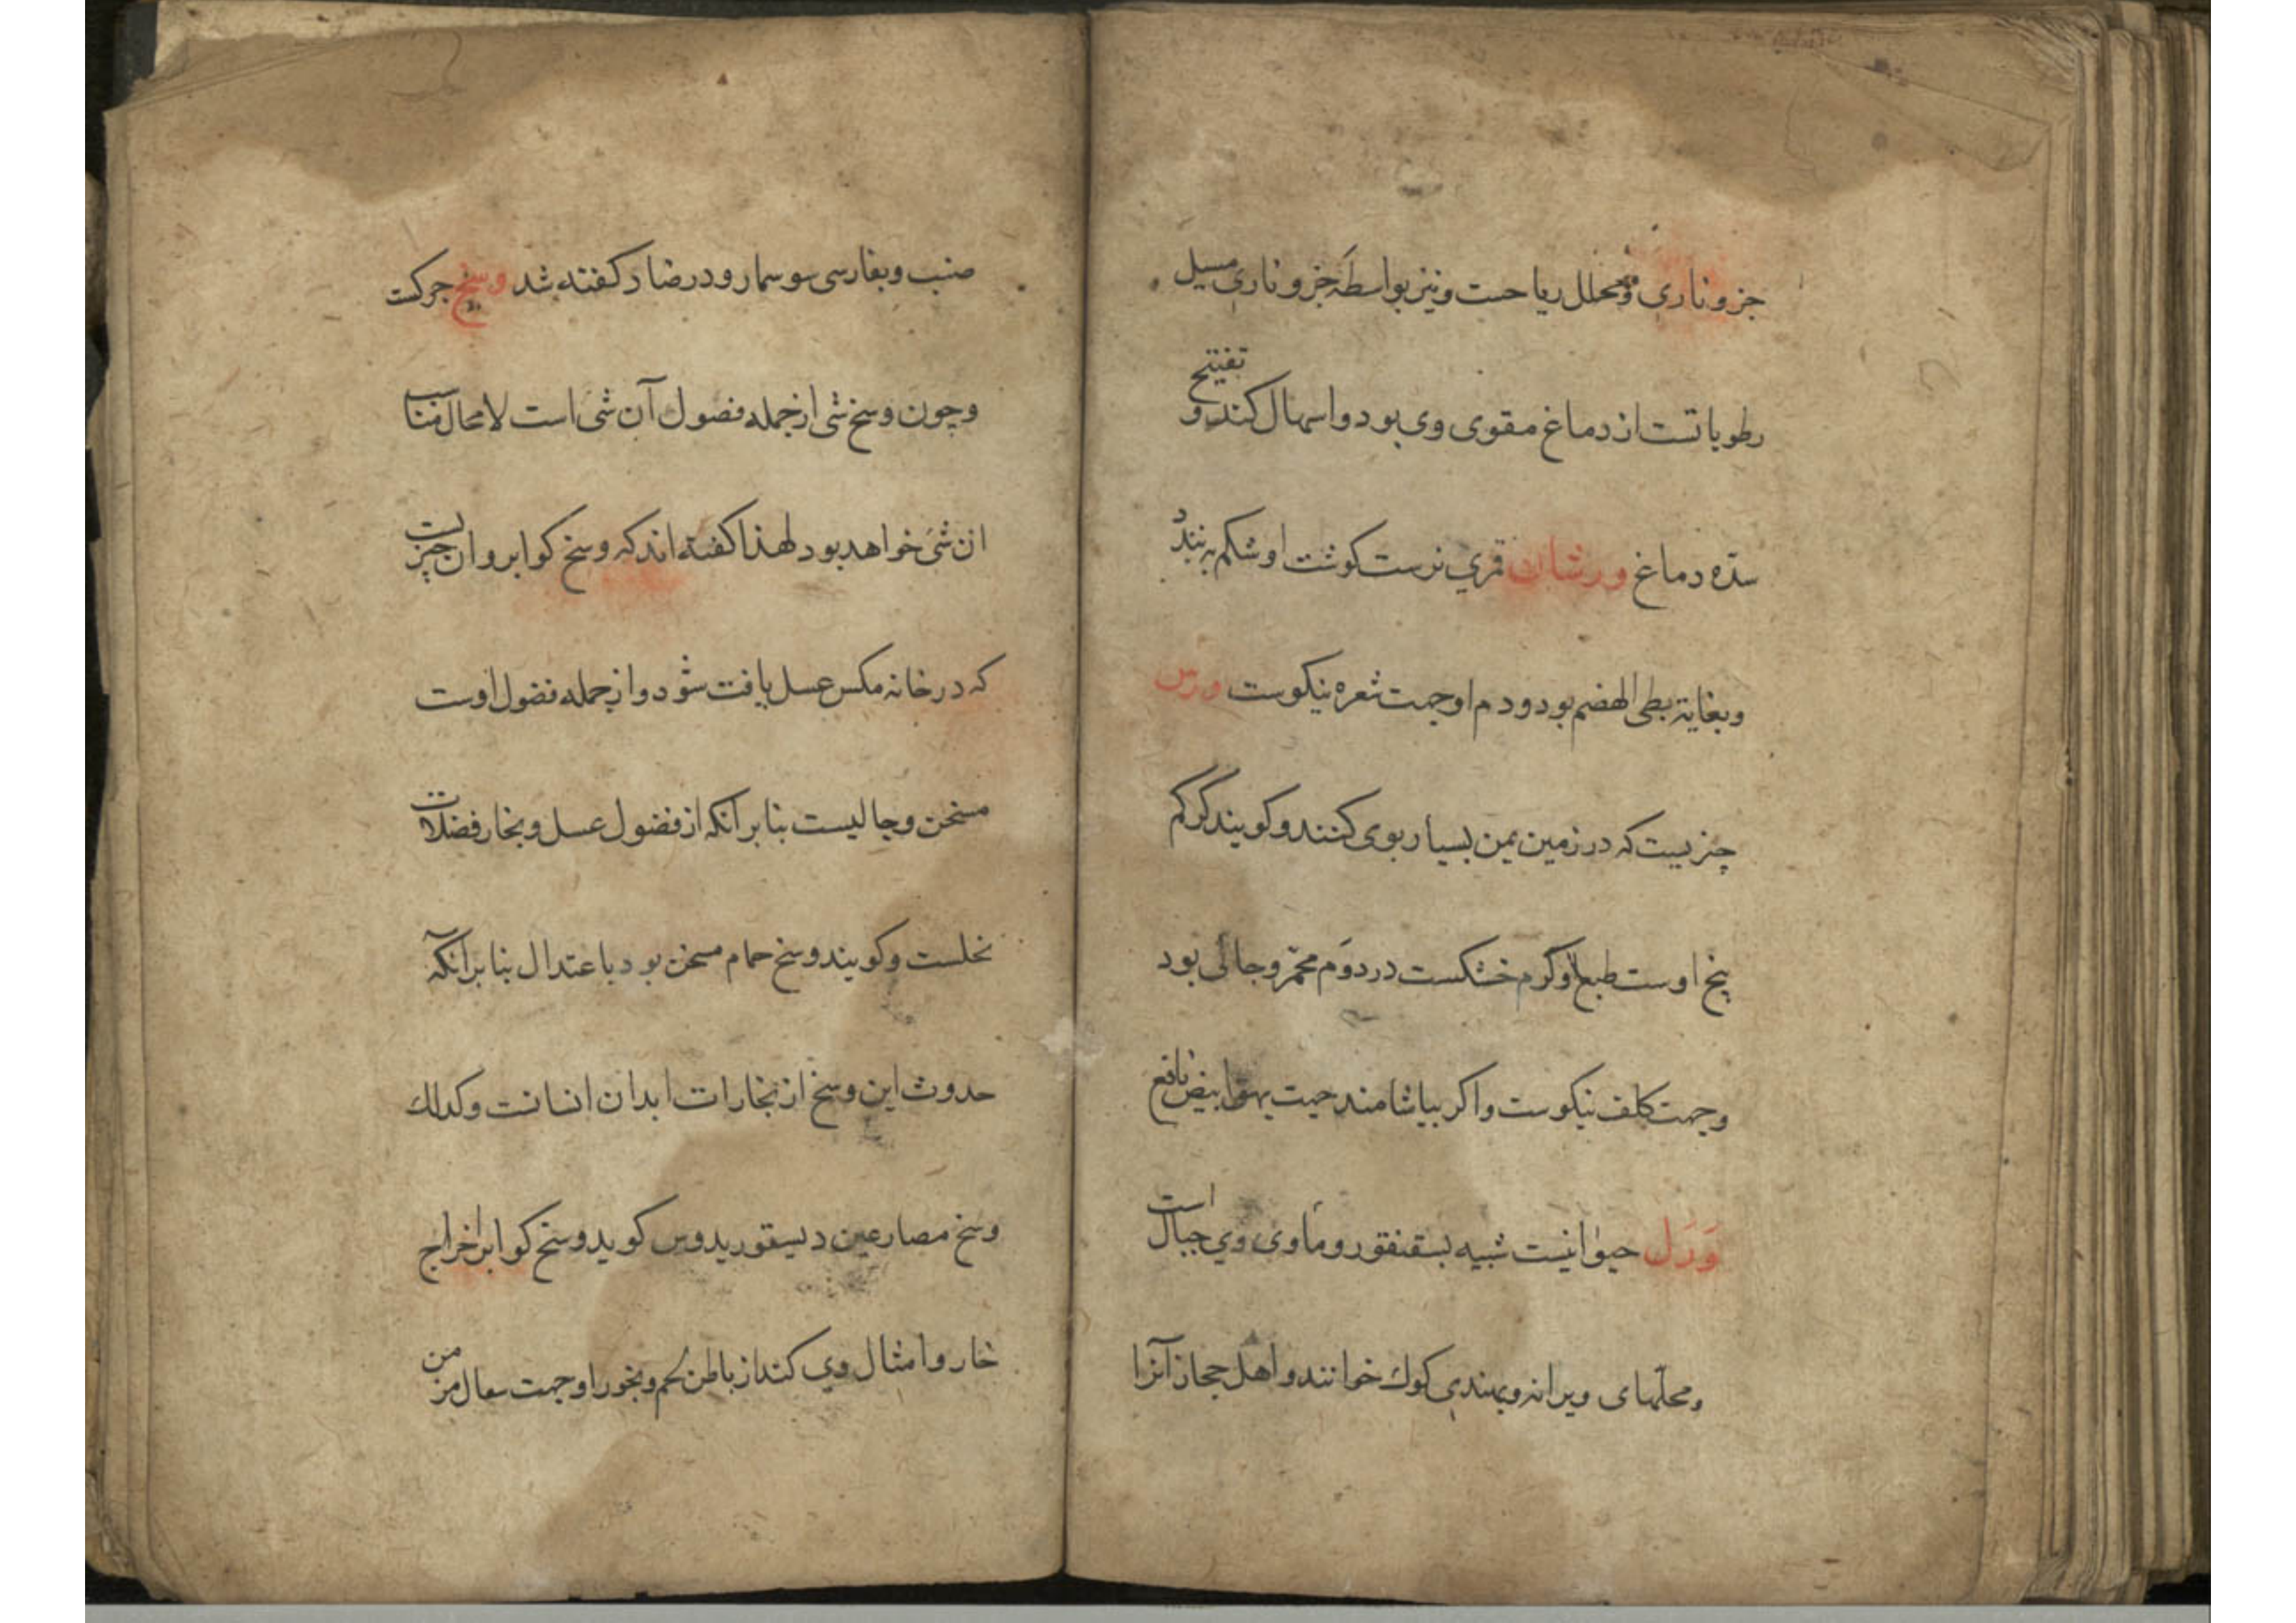 جزو ناری و محلل ریاحست و نیز بواسطهٔ جزو ناری مسیل
رطوباتست از دماغ مقوی وی بود و اسهال کند و تفتیح
سدّه دماغ ورشان قمري نرست کوشت او شکم به بندد
و بغایة بطی الهضم بود و دم او جهت ثعره نیکوست ورس
چیزیست که در زمین یمن بسیار بوی کنند و کویند کرکم
بیخ اوست طبع او کرم خشکست در دوّم محمّر و جالی بود
و جهت کلف نیکوست و اکر بیاشامند جهت بهق ابیض نافع
وَرَل حیوانیست شبیه بسقنقور و ماوی وي جبال است
و محلّهای ویرانه و بهندي کوك خوانند و اهل حجاز آنرا
ضب و بفارسی سوسمار و در ضاد کفته شد وسخ جرکست
و چون وسخ شی از جمله فضول آن شی است لامحاله مناسب
ان شی خواهد بود لهذا کفته اند که وسخ کوابر و ان چیزیست
که در خانه مکس عسل یافت شود و از جمله فضول اوست
مسخن و جالیست بنا بر آنکه از فضول عسل و بخار فضلات
نحلست و کویند وسخ حمام مسخن بود باعتدال بنا بر آنکه
حدوث این وسخ از بخارات ابدان انسانست و کذلك
وسخ مصارعین دیسقوریدوس کوید وسخ کوابر اخراج
خار و امثال وي کند از باطن لحم و بخور او جهت سعال مزمن